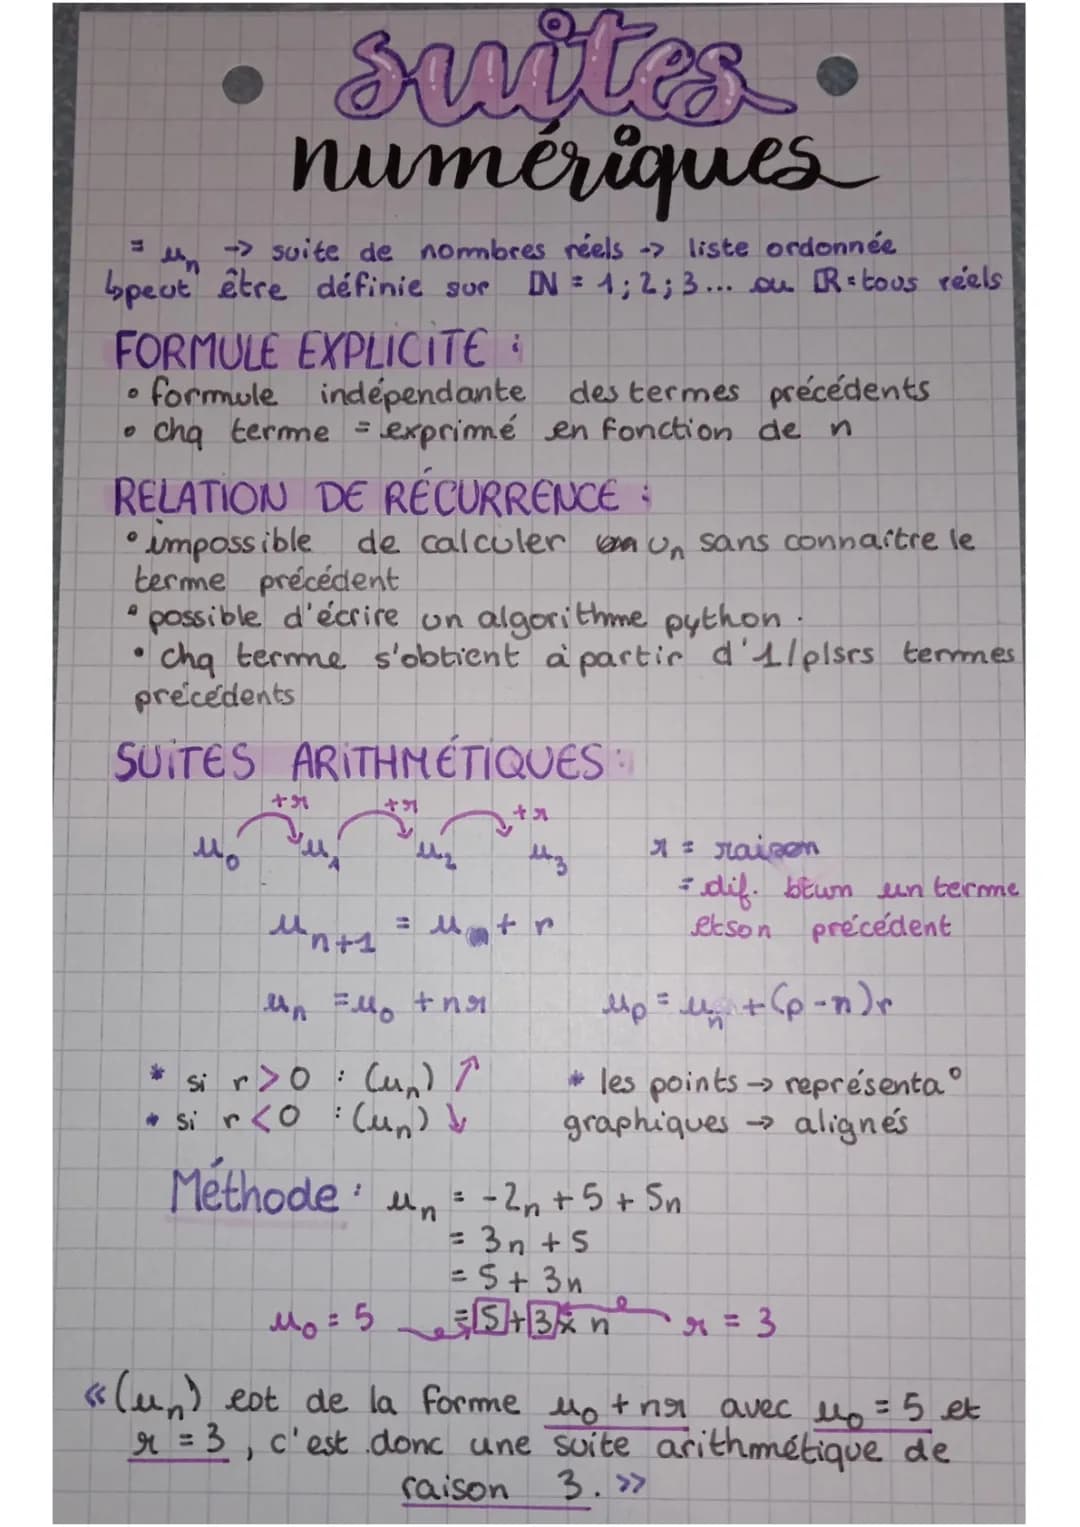 suites
numériques
= un -> suite de nombres réels -> liste ordonnée
↳peut être définie sur ℕ = 1; 2; 3... ou ℝ = tous réels
FORMULE EXPLICITE :
• formule indépendante des termes précédents
• chq terme = exprimé en fonction de n
RELATION DE RÉCURRENCE :
• impossible de calculer un sans connaître le
terme précédent
• possible d'écrire un algorithme python.
• chq terme s'obtient à partir d'1/plsrs termes
précédents
SUITES ARITHMÉTIQUES :
+r +r +r
u0 u1 u2 u3 r = raison
= dif. btwn un terme
et son précédent
un+1 = un + r
un = u0 + nr up = un + (p-n)r
* si r > 0 : (un) ↑ * les points → représenta°
* si r < 0 : (un) ↓ graphiques → alignés
Méthode : un = -2n + 5 + 5n
= 3n + 5
= 5 + 3n
u0 = 5 = 5 + 3 x n r = 3
«(un) est de la forme u0 + nr avec u0 = 5 et
r = 3, c'est donc une suite arithmétique de
raison 3. »